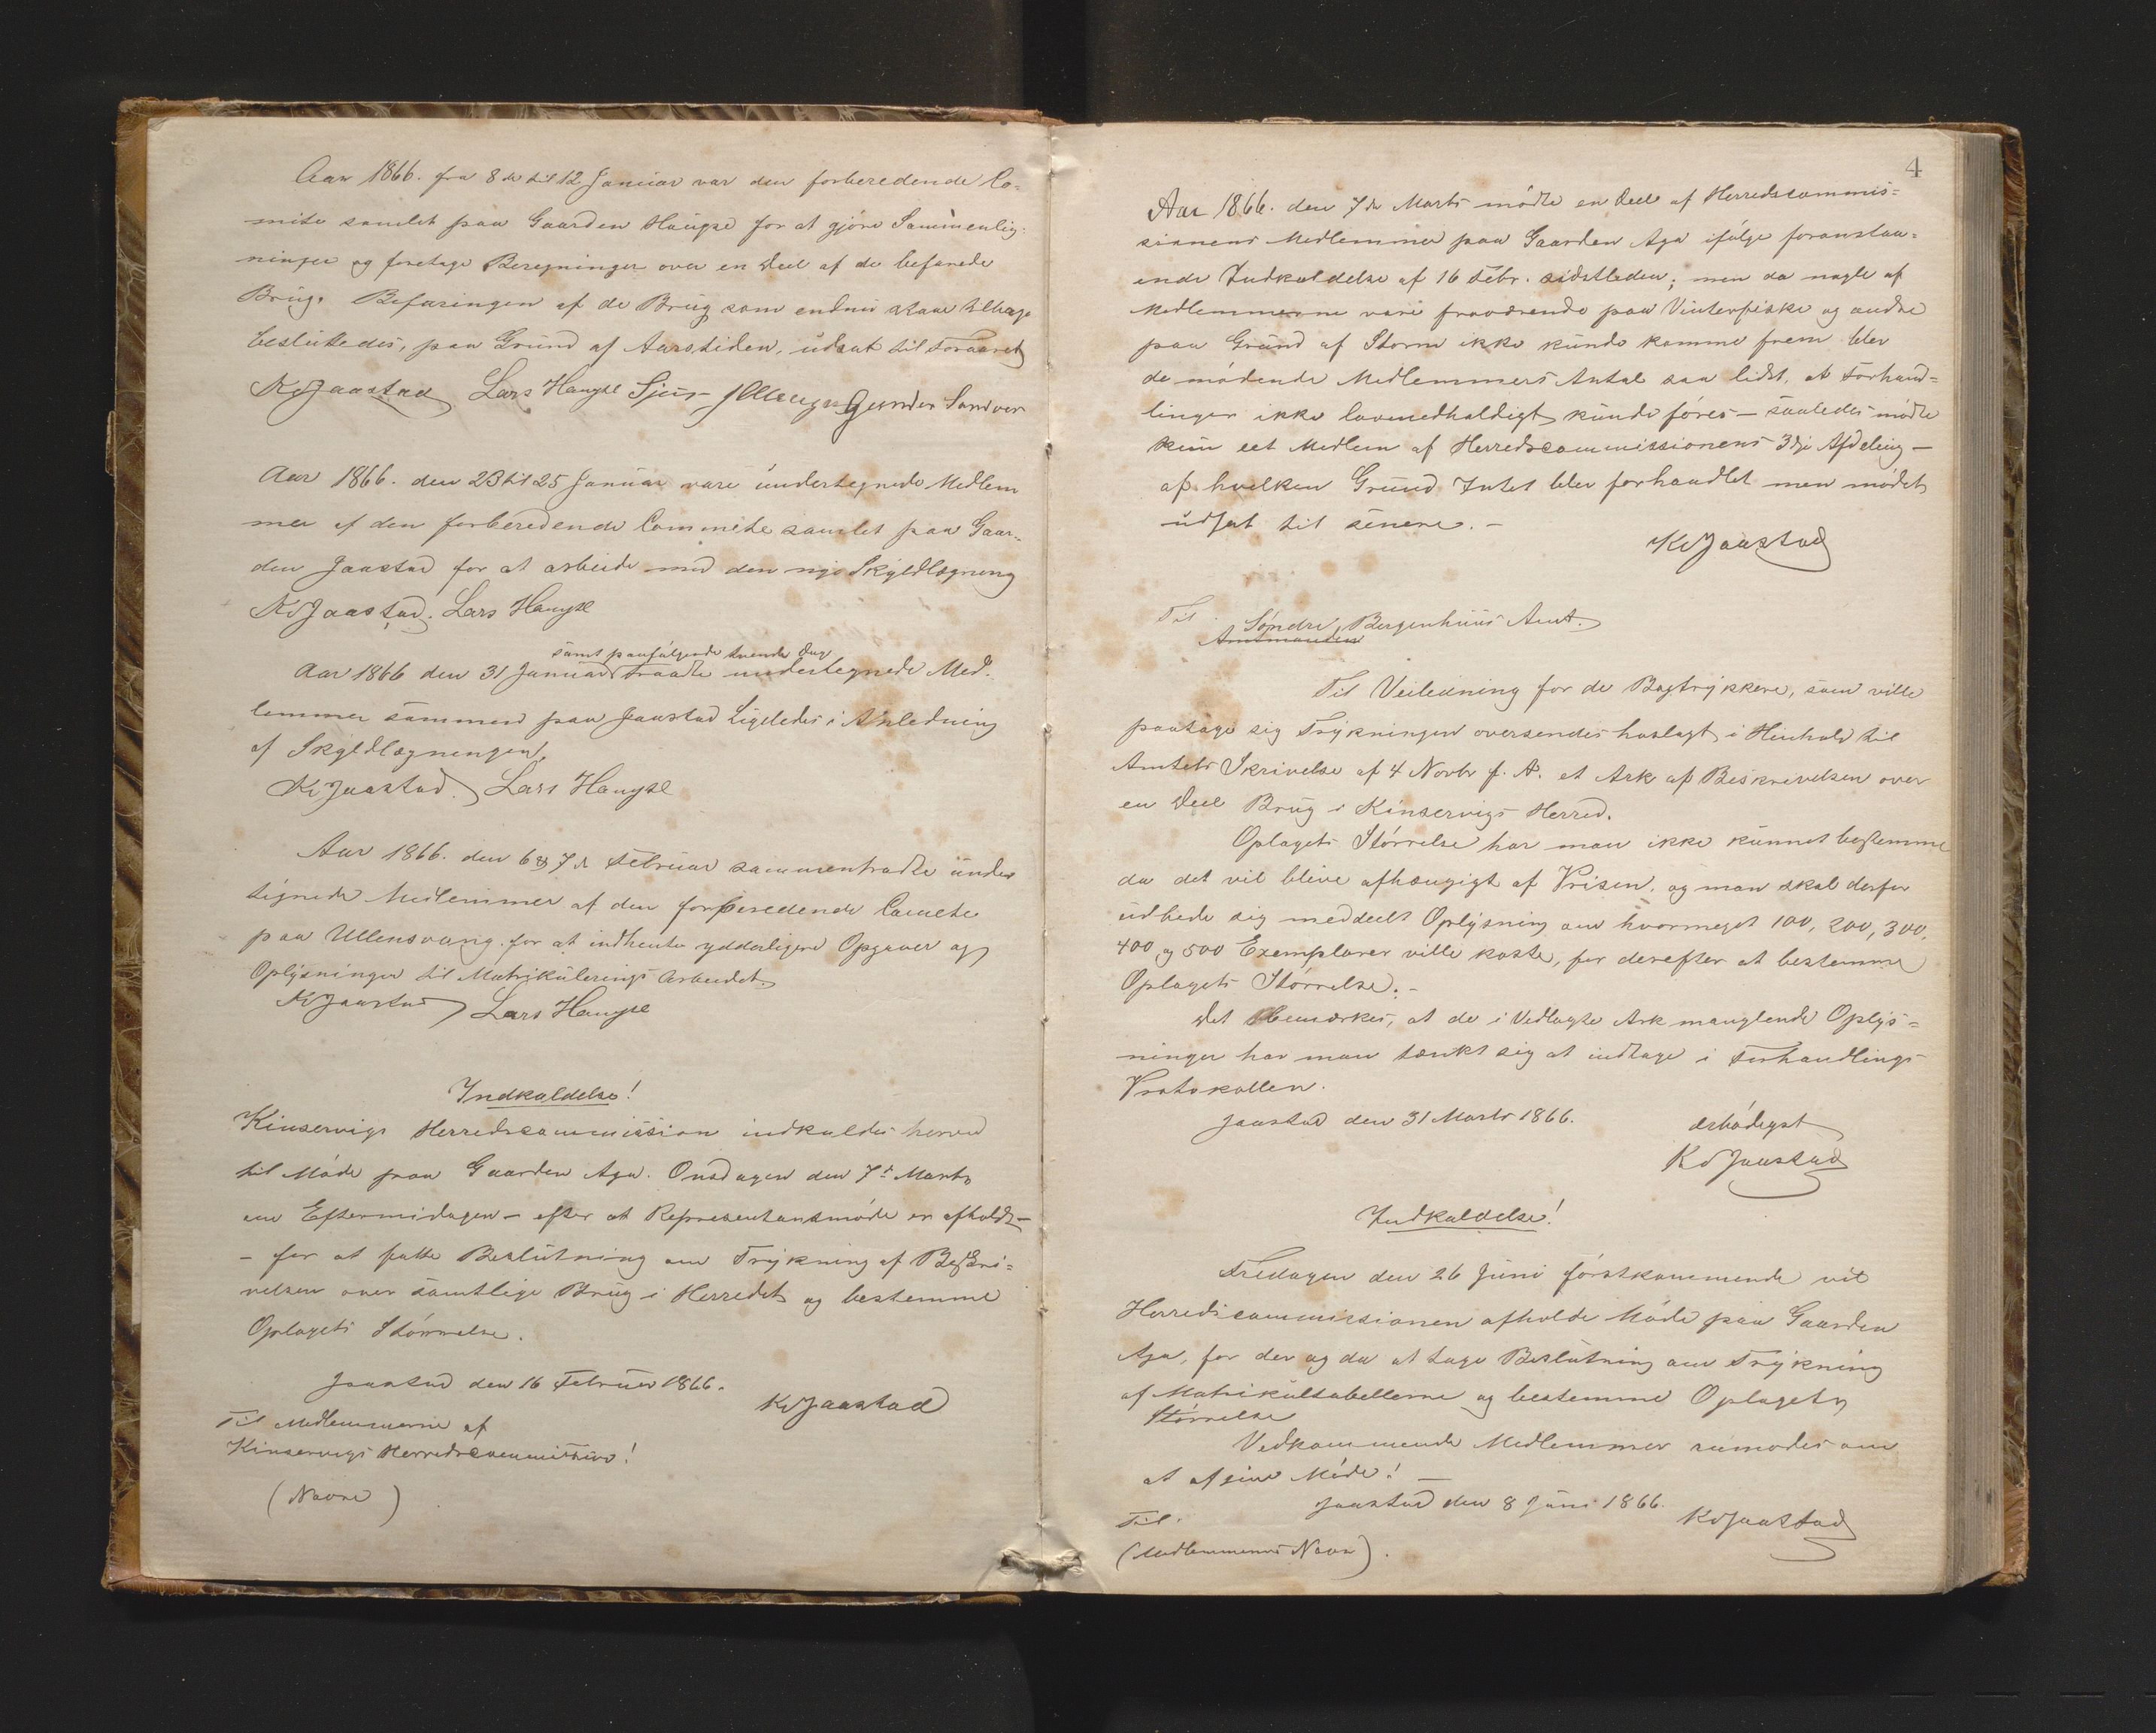 Aar 1866. fra 8de til 12 Januar var den forberedende Co-
mite samlet paa Gaarden Haugse for at gjøre Sammenlig-
ninger og foretage Beregninger over en Deel af de befarede
Brug. Befaringen af de Brug som endnu staae tilbage
besluttedes, paa Grund af Aarstiden, udsat til Foraaret
K Jaastad Lars Haugse Sjur Gunder Sandven
Aar 1866. den 23 til 25 Januar vare undertegnede Medlem
mer af den forberedende Committe samlet paa Gaar-
den Jaastad for at arbeide med den nye Skyldlægning
K Jaastad. Lars Haugse
samt paafølgende tvende Dage
Aar 1866 den 31 Januar traadte undertegnede Med-
lemmer sammen paa Jaastad Ligeledes i Anledning
af Skyldlægningen,
K Jaastad. Lars Haugse
Aar 1866. den 6 og 7de Februar sammentraadte under
tegnede Medlemmer af den forberedende Comite
paa Ullensvang for at indhente ydderligere Opgaver og
Oplysninger til Matrikulerings Arbeidet.
K Jaastad Lars Haugse
Indkaldelse!
Kinservigs Herredscommission indkaldes herved
til Møde paa Gaarden Aga. Onsdagen den 7de Marts
om Eftermidagen - efter at Representantmøde er afholdt -
- for at fatte Beslutning om Trykning af Beskri-
velsen over samtlige Brug i Herredet og bestemme
Oplagets Størrelse.
Jaastad den 16 Februar 1866.
K Jaastad
Til Medlemmerne af
Kinservigs Herredscommission!
(Navne)
4
Aar 1866. den 7de Marts mødte en Deel af Herredscommis-
sionens Medlemmer paa Gaarden Aga ifølge foranstaa-
ende Indkaldelse af 16 Febr. sidstleden; men da nogle af
Medlemmerne vare fraværende paa Vinterfiske og andre
paa Grund af Storm ikke kunde komme frem blev
de mødende Medlemmers Antal saa lidet, at Forhand-
linger ikke lovmedholdigt kunde føres - saaledes mødte
kun eet Medlem af Herredscommissionens 3die Afdeling -
af hvilken Grund Intet blev forhandlet men mødet
udsat til senere. -
K Jaastad
Til Søndre Bergenhuus Amt.
Amtmanden
Til Veiledning for de Bogtrykkere, som ville
paatage sig Trykningen oversendes hoslagt i Henhold til
Amtets Skrivelse af 4 Novbr f. A. et Ark af Beskrivelsen over
en Deel Brug i Kinservigs Herred.
Oplagets Størrelse har man ikke kunnet bestemme
da det vil blive afhængigt af Prisen, og man skal derfor
udbede sig meddeelt Oplysning om hvormeget 100, 200, 300,
400 og 500 Exemplarer ville koste, for derefter at bestemme
Oplagets Størrelse. -
Det bemærkes, at de i Vedlagte Ark manglende Oplys-
ninger har man tænkt sig at indtage i Forhandlings
Protokollen.
Jaastad den 31 Marts 1866.
ærbødigst
K Jaastad
Indkaldelse!
Fredagen den 26 Juni førstkommende vil
Herredscommissionen afholde Møde paa Gaarden
Aga, for der og da at tage Beslutning om Trykning
af Matrikultabellerne og bestemme Oplagets
Størrelse
Vedkommende Medlemmer anmodes om
at afgive Møde! -
Jaastad den 8 Juni 1866.
K Jaastad
Til
(Medlemmernes Navne).